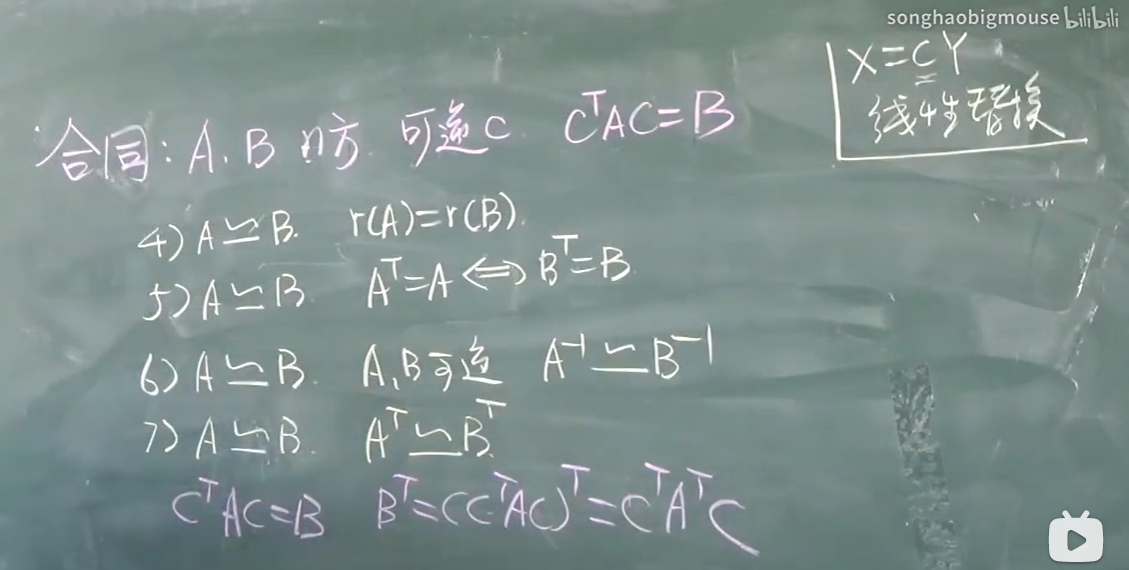 songhaobigmouse bilibili
X=CY
线性替换
合同: A, B n方 可逆C CᵀAC=B
4) A≃B. r(A)=r(B).
5) A≃B Aᵀ=A⟺Bᵀ=B
6) A≃B. A,B可逆 A⁻¹≃B⁻¹
7) A≃B. Aᵀ≃Bᵀ
CᵀAC=B Bᵀ=(CᵀAC)ᵀ=CᵀAᵀC